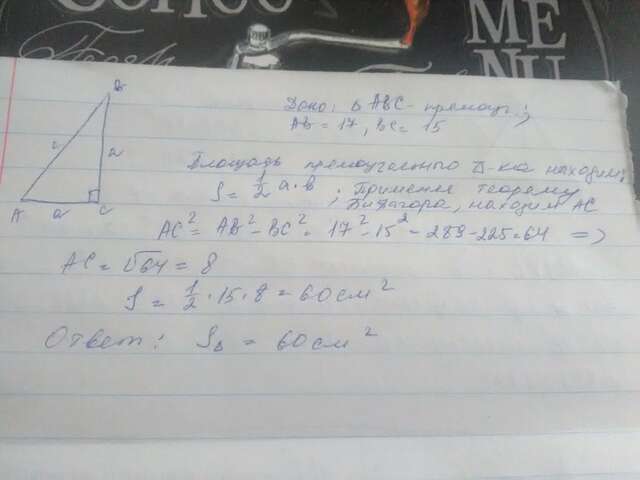 COFFEE
ME
NU
B
A
a
C
Дано: Δ ABC - прямоуг.;
AB = 17, BC = 15
Площадь прямоугольного Δ-ка находим:
S = 1/2 a · b ; Применяя теорему
Пифагора, находим AC
AC² = AB² - BC² = 17² - 15² = 289 - 225 = 64 =>
AC = √64 = 8
S = 1/2 · 15 · 8 = 60 см²
Ответ: SΔ = 60 см²